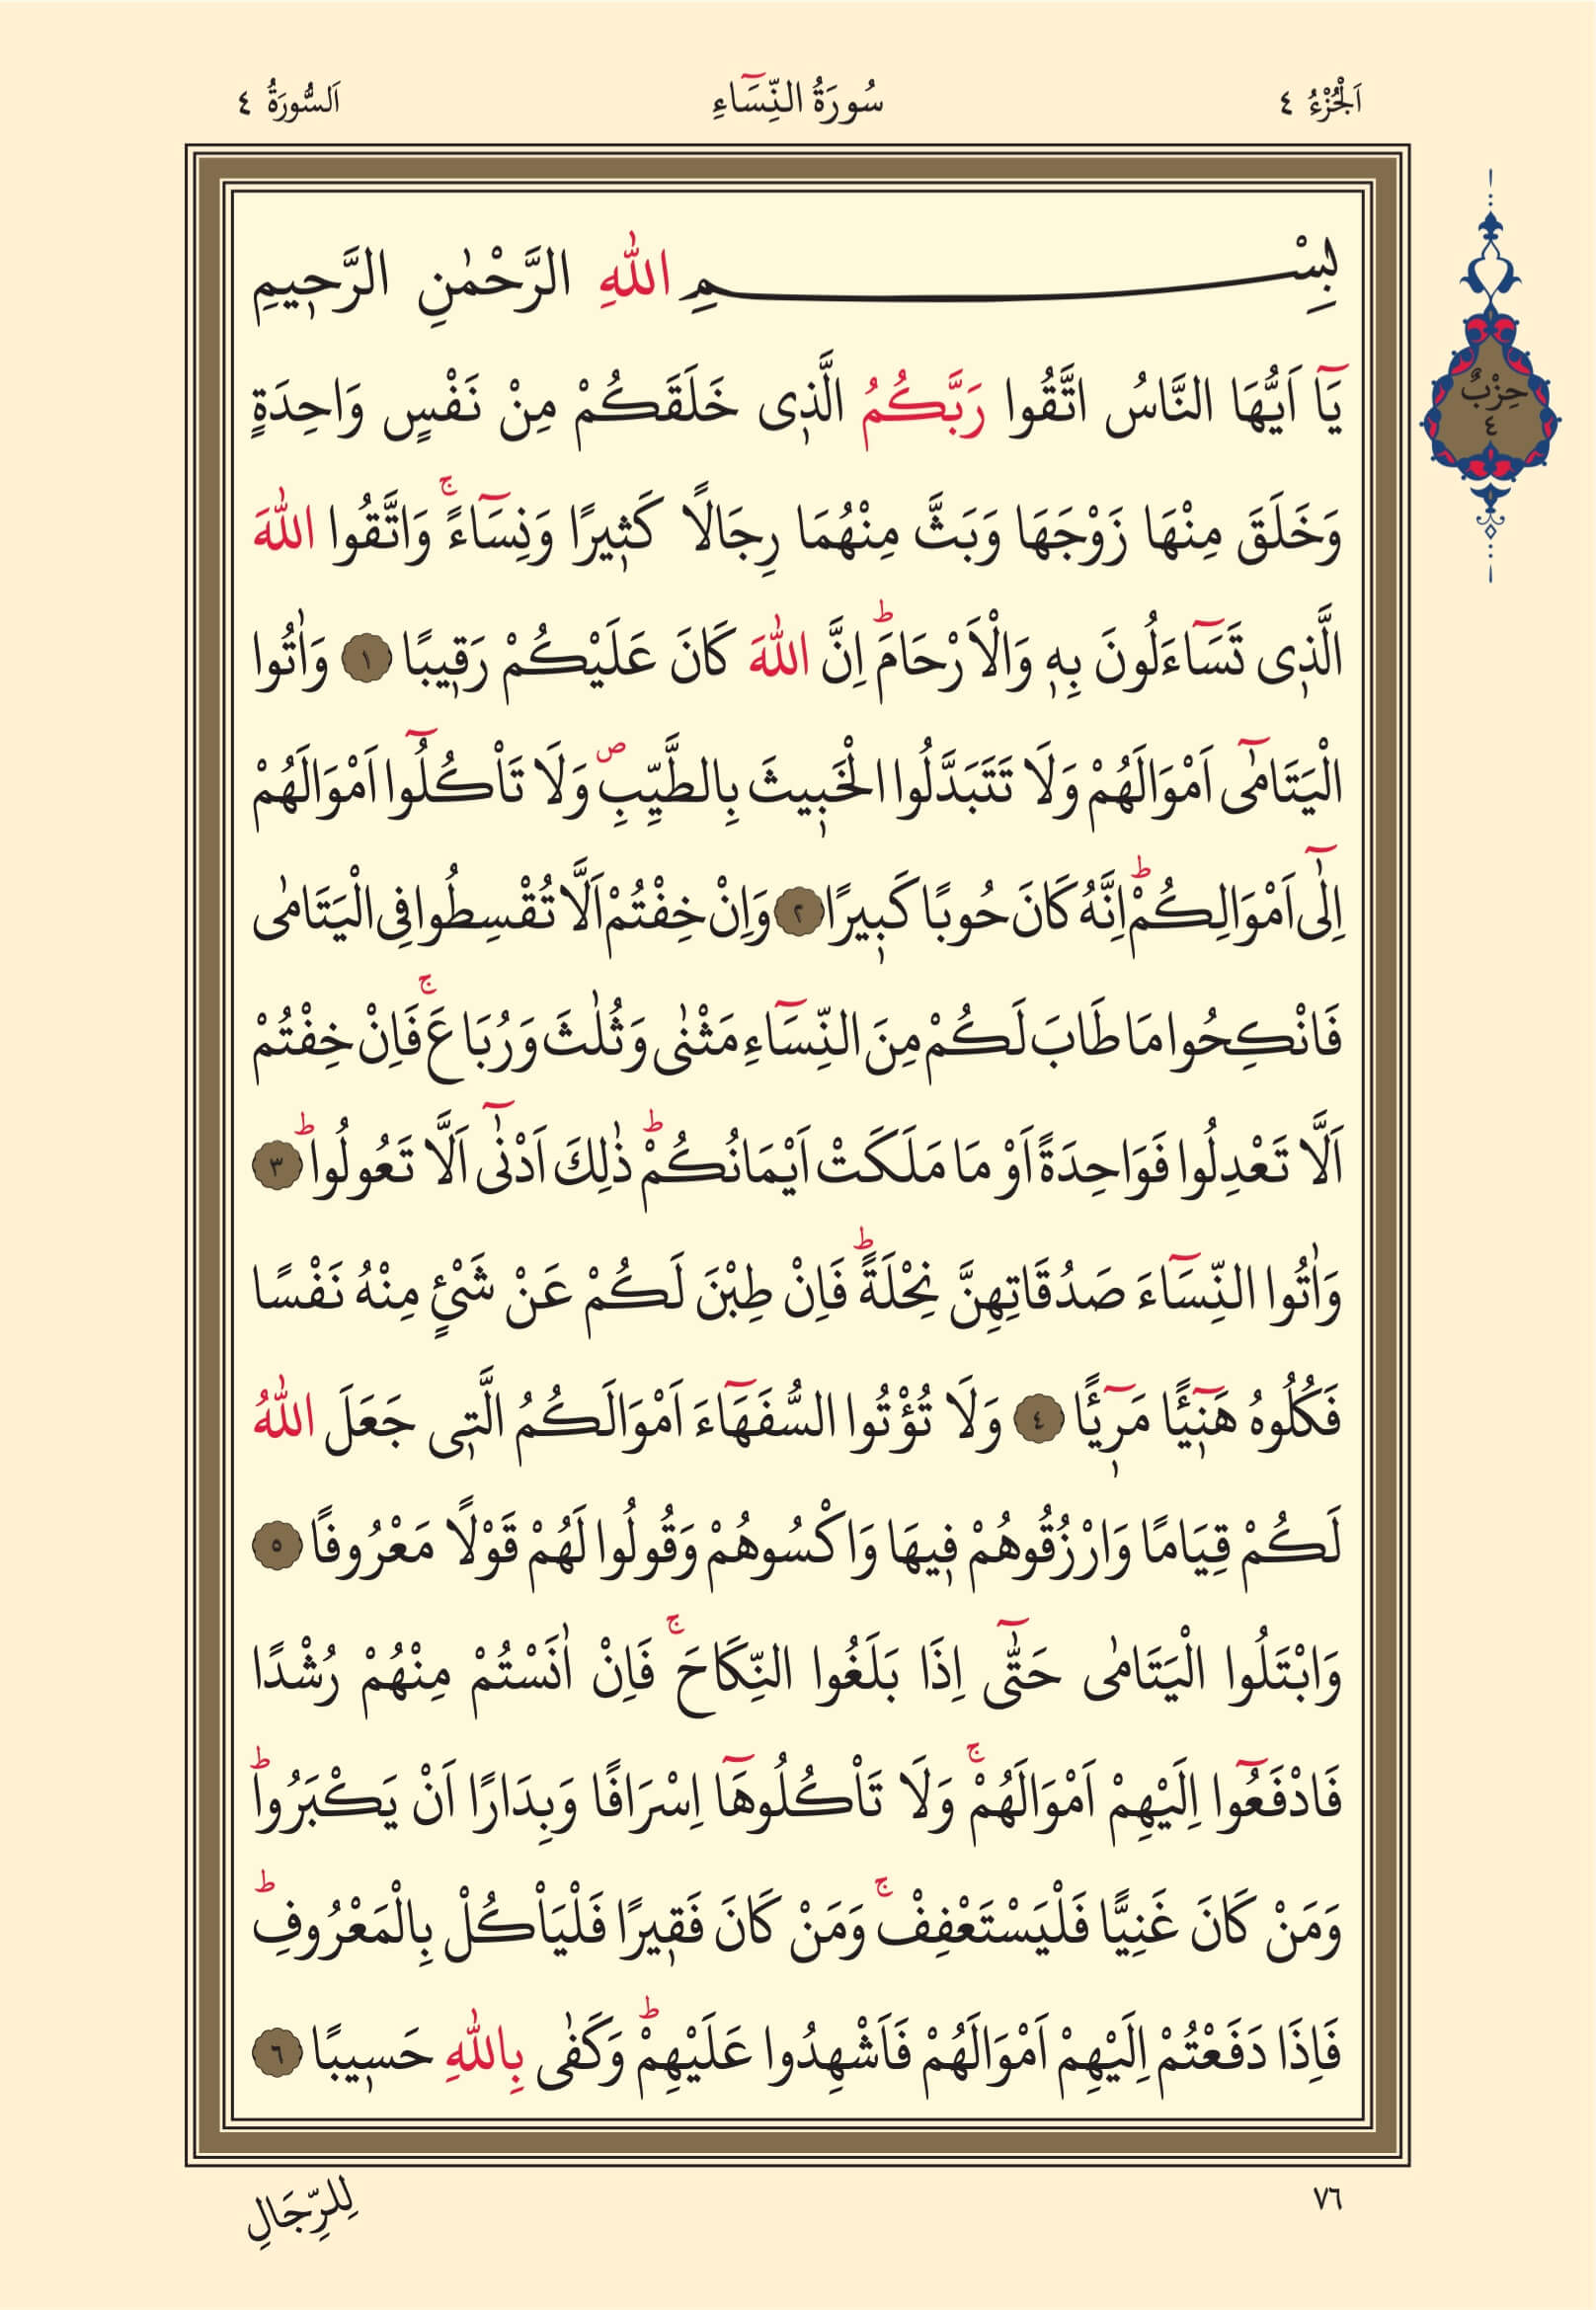 اَلْجُزْءُ ٤
سُورَةُ النِّسَٓاءِ
اَلسُّورَةُ ٤
حِزْبٌ
٤
بِسْــــــــــمِ اللّٰهِ الرَّحْمٰنِ الرَّح۪يمِ
يَٓا اَيُّهَا النَّاسُ اتَّقُوا رَبَّكُمُ الَّذ۪ى خَلَقَكُمْ مِنْ نَفْسٍ وَاحِدَةٍ
وَخَلَقَ مِنْهَا زَوْجَهَا وَبَثَّ مِنْهُمَا رِجَالًا كَث۪يرًا وَنِسَٓاءًۚ وَاتَّقُوا اللّٰهَ
الَّذ۪ى تَسَٓاءَلُونَ بِه۪ وَالْاَرْحَامَۜ اِنَّ اللّٰهَ كَانَ عَلَيْكُمْ رَق۪يبًا ١ وَاٰتُوا
الْيَتَامٰٓى اَمْوَالَهُمْ وَلَا تَتَبَدَّلُوا الْخَب۪يثَ بِالطَّيِّبِۖ وَلَا تَاْكُلُٓوا اَمْوَالَهُمْ
اِلٰٓى اَمْوَالِكُمْۜ اِنَّهُ كَانَ حُوبًا كَب۪يرًا ٢ وَاِنْ خِفْتُمْ اَلَّا تُقْسِطُوا فِى الْيَتَامٰى
فَانْكِحُوا مَا طَابَ لَكُمْ مِنَ النِّسَٓاءِ مَثْنٰى وَثُلٰثَ وَرُبَاعَۚ فَاِنْ خِفْتُمْ
اَلَّا تَعْدِلُوا فَوَاحِدَةً اَوْ مَا مَلَكَتْ اَيْمَانُكُمْۜ ذٰلِكَ اَدْنٰٓى اَلَّا تَعُولُواۜ ٣
وَاٰتُوا النِّسَٓاءَ صَدُقَاتِهِنَّ نِحْلَةًۜ فَاِنْ طِبْنَ لَكُمْ عَنْ شَىْئٍ مِنْهُ نَفْسًا
فَكُلُوهُ هَن۪ٓيئًا مَر۪ٓيئًا ٤ وَلَا تُؤْتُوا السُّفَهَٓاءَ اَمْوَالَكُمُ الَّت۪ى جَعَلَ اللّٰهُ
لَكُمْ قِيَامًا وَارْزُقُوهُمْ ف۪يهَا وَاكْسُوهُمْ وَقُولُوا لَهُمْ قَوْلًا مَعْرُوفًا ٥
وَابْتَلُوا الْيَتَامٰى حَتّٰٓى اِذَا بَلَغُوا النِّكَاحَۚ فَاِنْ اٰنَسْتُمْ مِنْهُمْ رُشْدًا
فَادْفَعُٓوا اِلَيْهِمْ اَمْوَالَهُمْۚ وَلَا تَاْكُلُوهَٓا اِسْرَافًا وَبِدَارًا اَنْ يَكْبَرُواۜ
وَمَنْ كَانَ غَنِيًّا فَلْيَسْتَعْفِفْۚ وَمَنْ كَانَ فَق۪يرًا فَلْيَاْكُلْ بِالْمَعْرُوفِۜ
فَاِذَا دَفَعْتُمْ اِلَيْهِمْ اَمْوَالَهُمْ فَاَشْهِدُوا عَلَيْهِمْۜ وَكَفٰى بِاللّٰهِ حَس۪يبًا ٦
٧٦
لِلرِّجَالِ